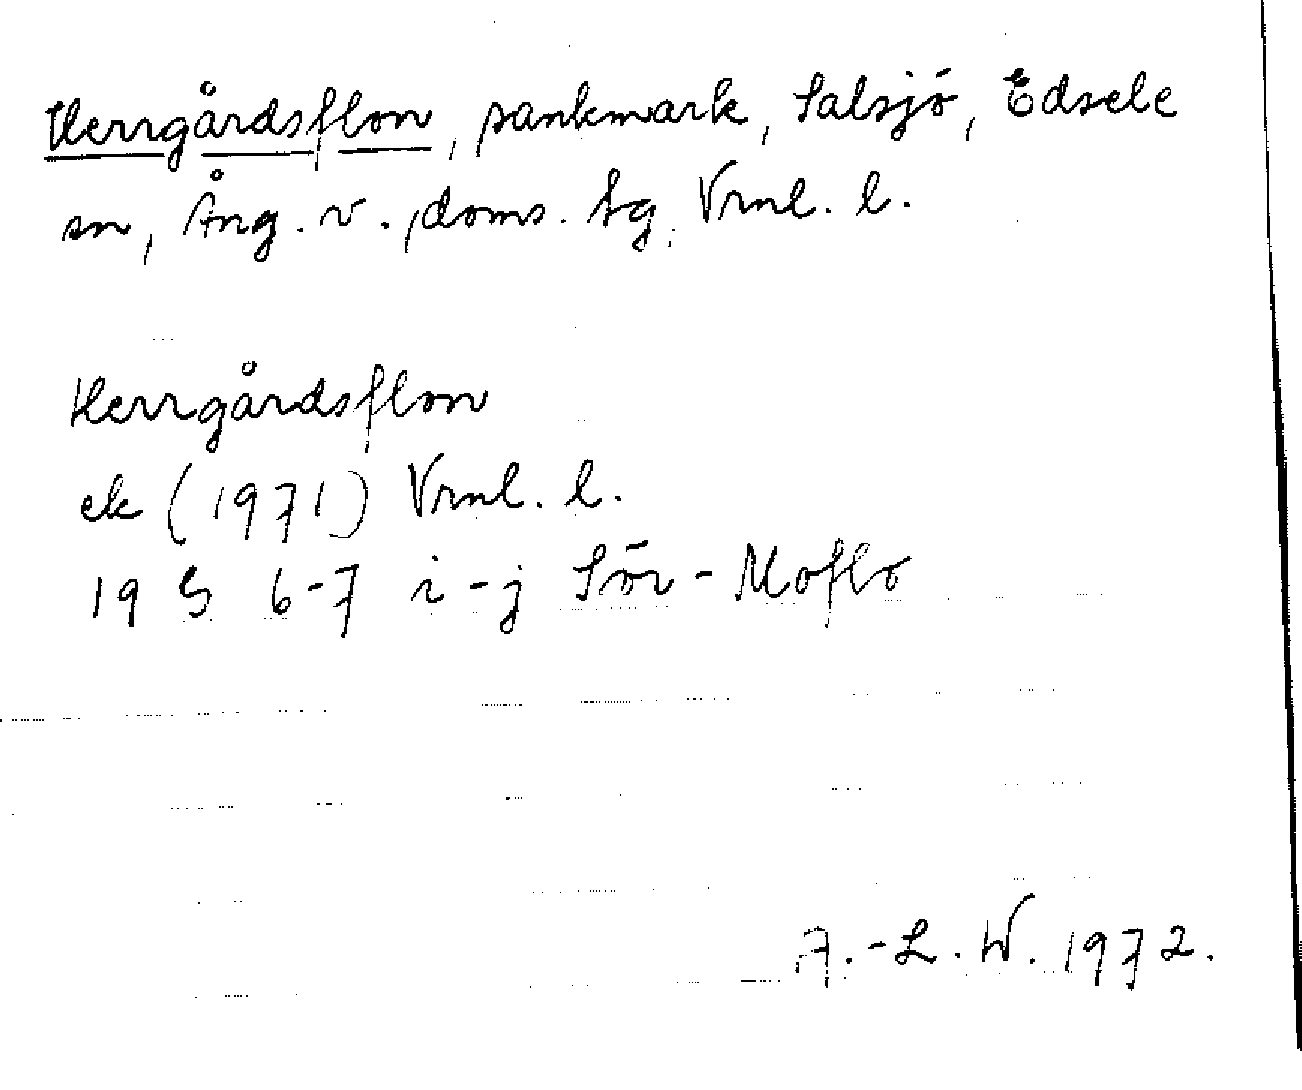 Herrgårdsflon, sankmark, Salsjö, Edsele
sn, Ång. v., doms. sg, Vrnl. l.
Herrgårdsflon
ek (1971) Vrnl. l.
19 G 6-7 i-j Sör-Moflo
A.-L. W. 1972.